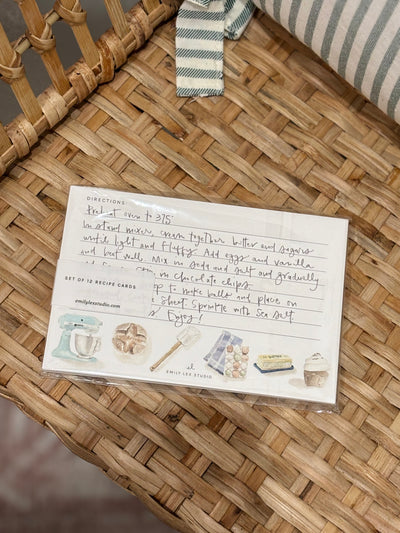 DIRECTIONS
Preheat oven to 375°
In stand mixer, cream together butter and sugars
until light and fluffy. Add eggs and vanilla
and beat well. Mix in soda and salt and gradually
in chocolate chips
to make balls and place on
Sheet Sprinkle with sea salt
Enjoy!
SET OF 12 RECIPE CARDS
emilylexstudio.com
el
EMILY LEX STUDIO